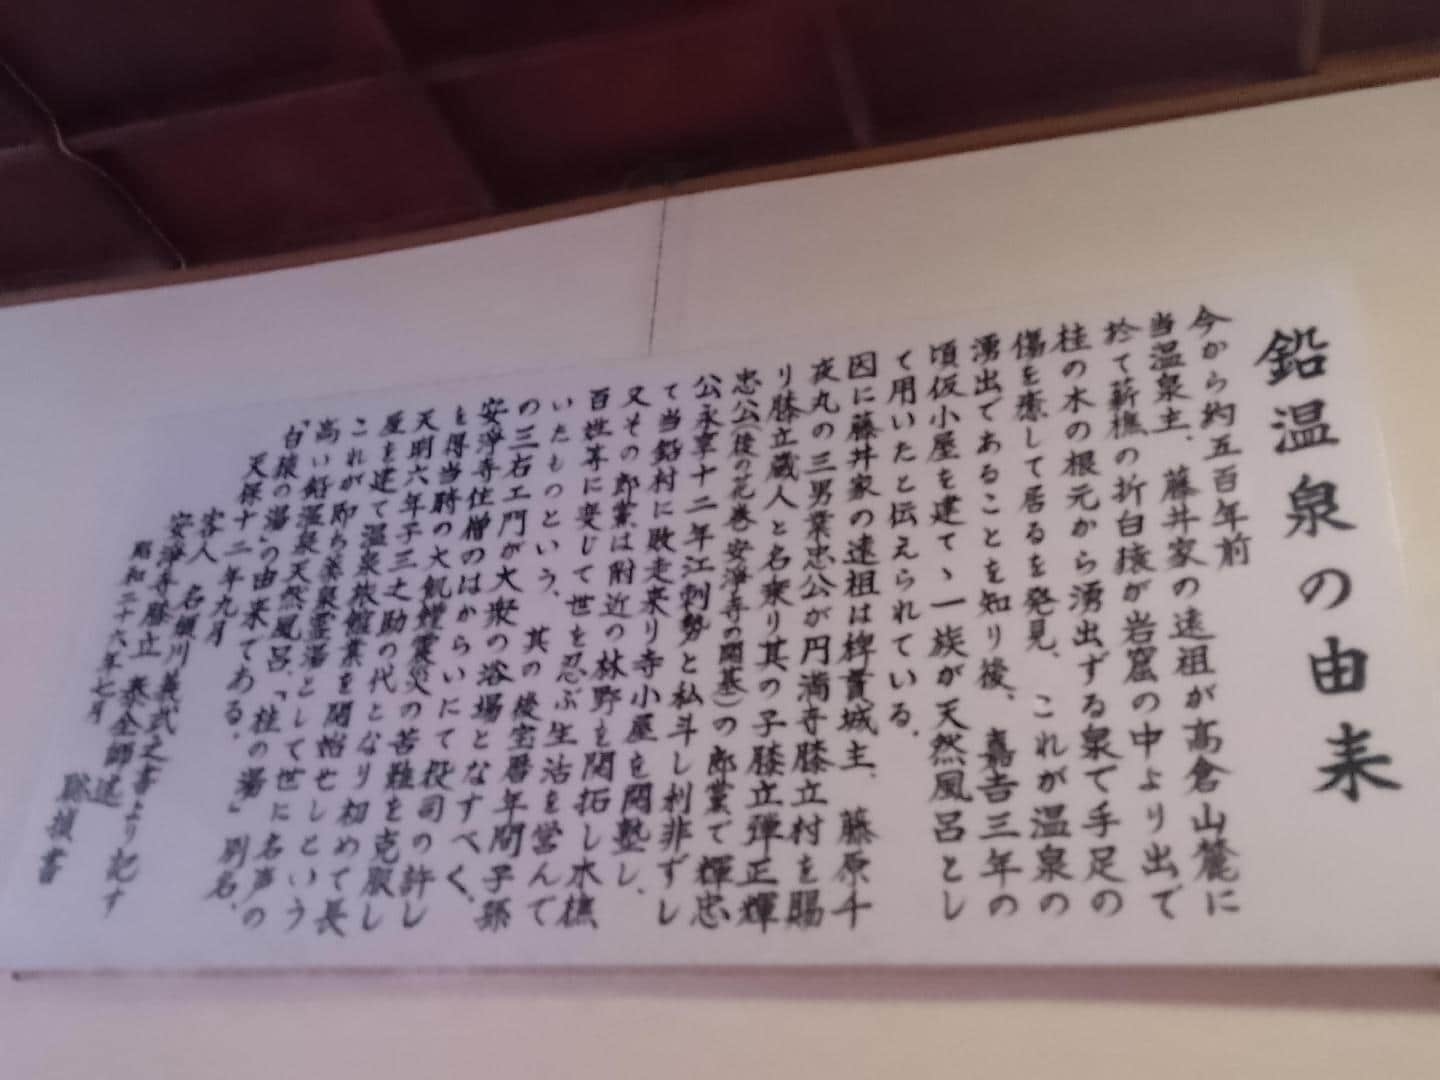 鉛温泉の由来
今から約五百年前
当温泉主、藤井家の遠祖が高倉山麓に
於て薪樵の折白猿が岩窟の中より出で
桂の木の根元から湧出ずる泉で手足の
傷を癒して居るを発見、これが温泉の
湧出であることを知り後、嘉吉三年の
頃仮小屋を建てゝ一族が天然風呂とし
て用いたと伝えられている。
因に藤井家の遠祖は稗貫城主、藤原千
夜丸の三男業忠公が円満寺膝立村を賜
り膝立蔵人と名乗り其の子膝立弾正輝
忠公(後の花巻安淨寺の開基)の郎党で輝忠
公永享十二年江刺勢と私斗し利非ずし
て当鉛村に敗走来り寺小屋を開塾し、
又その郎党は附近の林野を開拓し木樵
百姓等に変じて世を忍ぶ生活を営んで
いたものという、其の後宝暦年間子孫
の三右エ門が大衆の浴場となすべく、
安淨寺住僧のはからいにて役司の許し
を得当時の大飢饉震災の苦難を克服し
天明六年子三之助の代となり初めて長
屋を建て温泉旅館業を開始せしという
これが即ち薬泉霊湯として世に名声の
高い鉛温泉天然風呂、「桂の湯」別名、
「白猿の湯」の由来である.
天保十二年九月
客人 名須川義武之書より記す
安淨寺膝立 泰全師述
昭和二十六年七月